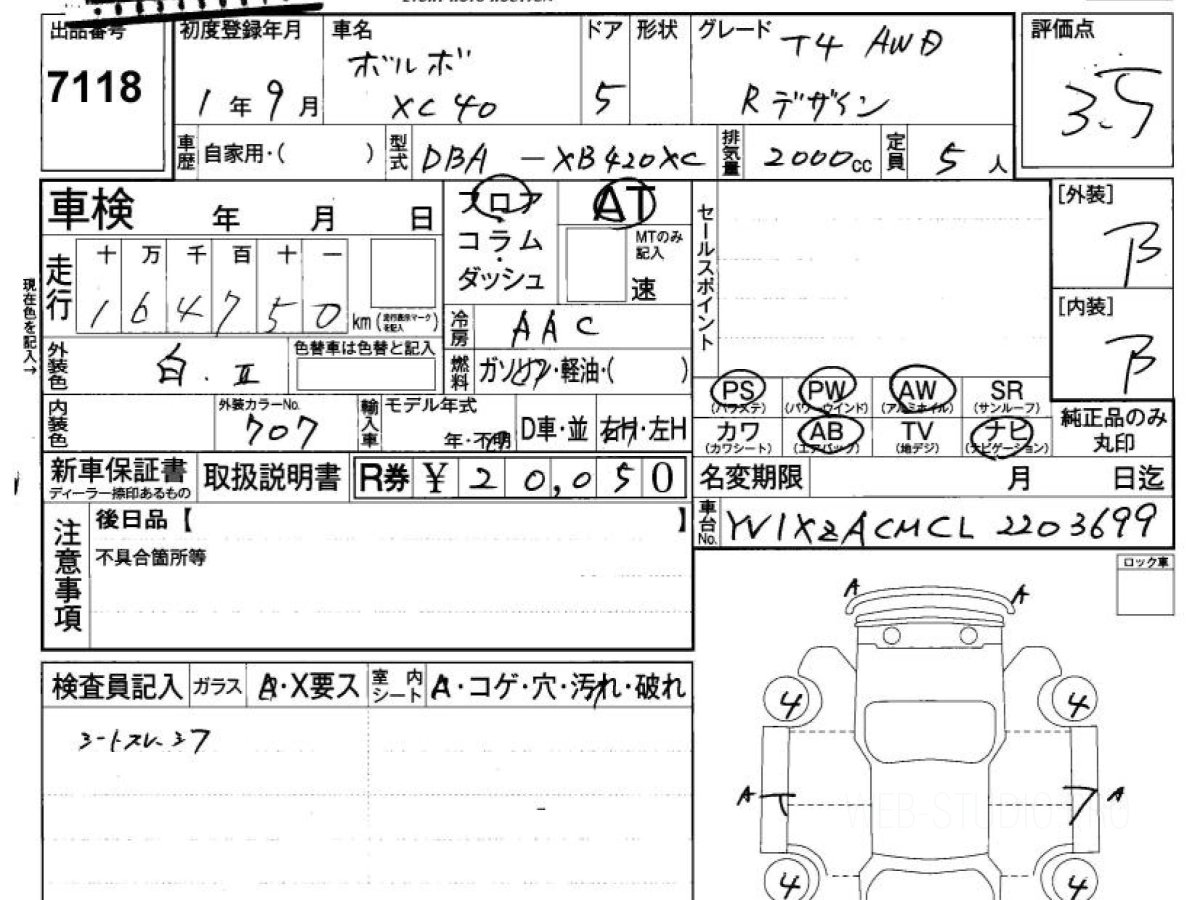 出品番号 初度登録年月 車名 ドア 形状 グレード 評価点
7118 1年9月 ボルボ XC40 5 T4 AWD Rデザイン 3.5
車歴 自家用・( ) 型式 DBA-XB420XC 排気量 2000cc 定員 5人
車検 年 月 日 フロア AT セールスポイント [外装] B
コラム
ダッシュ
MTのみ記入 速
現在色を記入→
走行 十 万 千 百 十 一
1 6 4 7 5 0 km (走行表示マークを記入) [内装] B
冷房 AAC
外装色 白.II 色替車は色替と記入 燃料 ガソリン・軽油・( )
PS (パワステ) PW (パワーウインド) AW (アルミホイル) SR (サンルーフ)
カワ (カワシート) AB (エアバック) TV (地デジ) ナビ (ナビゲーション) 純正品のみ丸印
内装色 外装カラーNo. 707 輸入車 モデル年式 年・不明 D車・並 右H・左H
新車保証書 ディーラー捺印あるもの 取扱説明書 R券 ¥ 20,050 名変期限 月 日迄
注意事項 後日品【 】 車台No. YV1XZACMCL2203699
不具合箇所等
ロック車
A A
検査員記入 ガラス A・X要ス 室内シート A・コゲ・穴・汚れ・破れ
4 4
A A
WEB-STUDIO.PRO
4 4